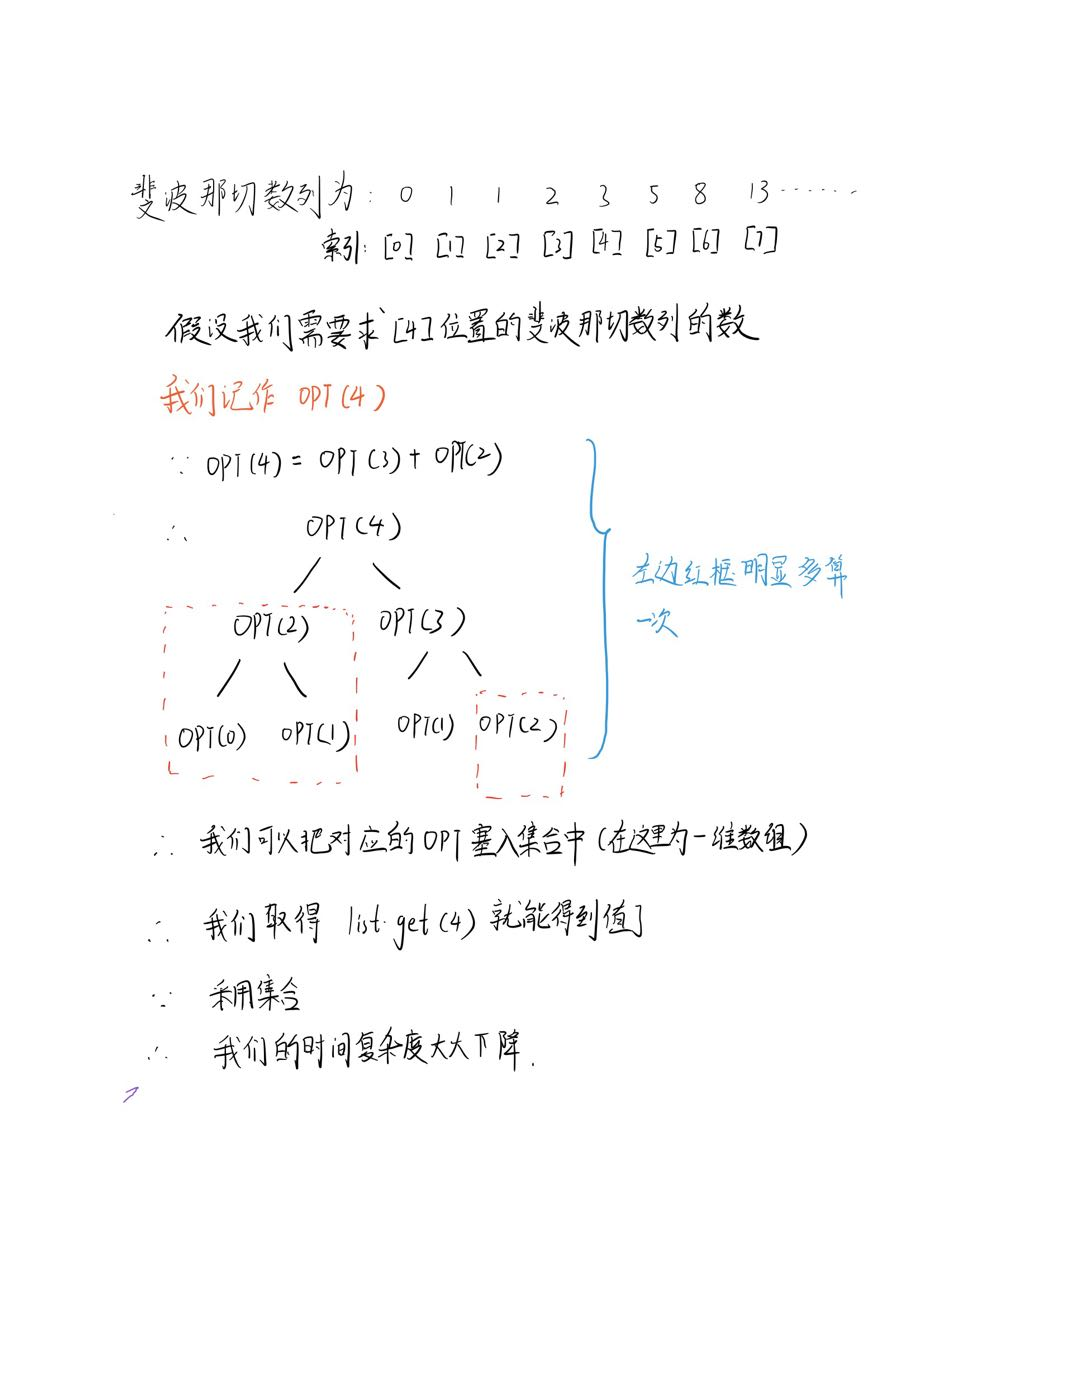 斐波那切数列为: 0 1 1 2 3 5 8 13 ······
索引: [0] [1] [2] [3] [4] [5] [6] [7]
假设我们需要求 [4]位置的斐波那切数列的数
我们记作 OPT(4)
∵ OPT(4) = OPT(3) + OPT(2)
∴ OPT(4)
OPT(2) OPT(3)
OPT(0) OPT(1) OPT(1) OPT(2)
左边红框明显多算
一次
∴ 我们可以把对应的OPT塞入集合中 (在这里为一维数组)
∴ 我们取得 list.get(4) 就能得到值了
∵ 采用集合
∴ 我们的时间复杂度大大下降.